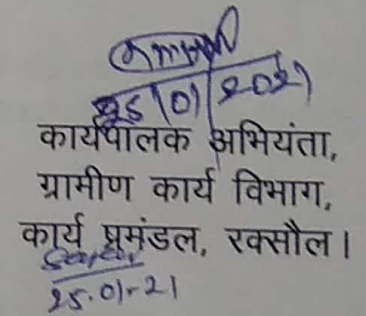 25/01/2021
कार्यपालक अभियंता,
ग्रामीण कार्य विभाग,
कार्य प्रमंडल, रक्सौल।
25.01-21